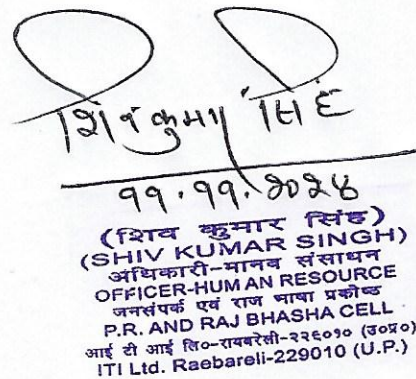 शिव कुमार सिंह
११.११.२०२४
(शिव कुमार सिंह)
(SHIV KUMAR SINGH)
अधिकारी-मानव संसाधन
OFFICER-HUMAN RESOURCE
जनसंपर्क एवं राज भाषा प्रकोष्ठ
P.R. AND RAJ BHASHA CELL
आई टी आई लि०-रायबरेली-२२६०१० (उ०प्र०)
ITI Ltd. Raebareli-229010 (U.P.)